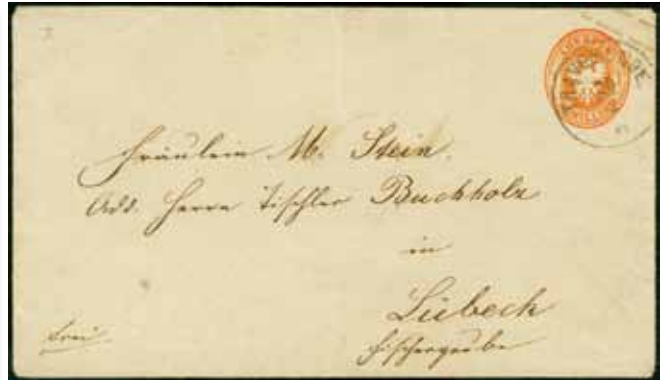 Fräulein M. Stein.
Add. Herrn Tischler Buchholz
in
Lübeck
Fischergrube
frei